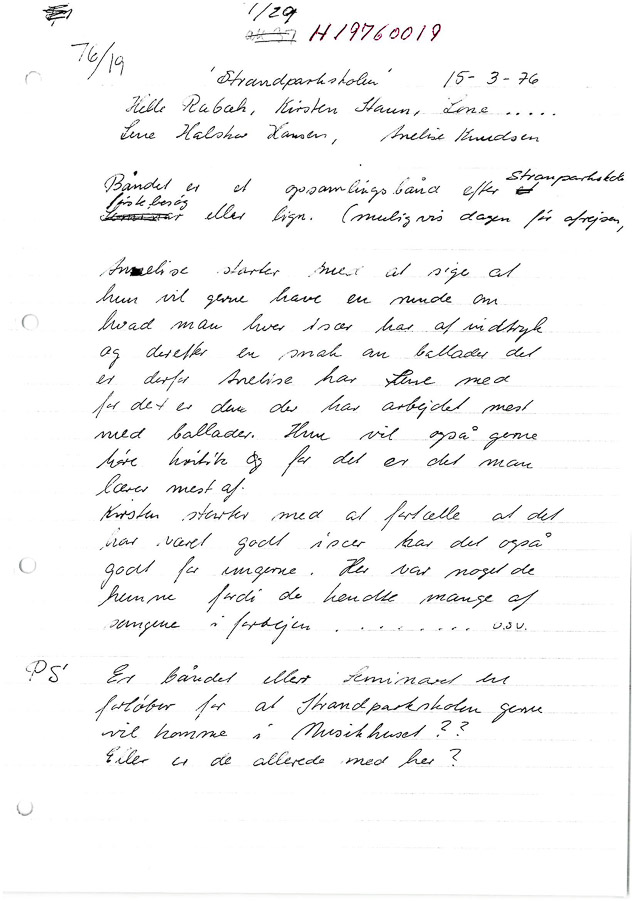 1/29
H19760019
76/19
'Strandparkskolen' 15-3-76
Helle Rabøk, Kirsten Haun, Lene .....
Lene Halskov Hansen, Anelise Knudsen
Båndet er et opsamlingsbånd efter Stranparkskole
første besøg eller lign. (muligvis dagen før afrejsen,
Annelise starter med at sige at
hun vil gerne have en runde om
hvad man hver især har af indtryk
og derefter en snak om ballader det
er derfor Anelise har Lene med
for det er den der har arbejdet mest
med ballader. Hun vil også gerne
høre kritik for det er det man
lærer mest af.
Kirsten starter med at fortælle at det
har været godt især har det også
godt for ungerne. Her var noget de
kunne fordi de kendte mange af
sangene i forvejen ......... o.s.v.
PS' Er båndet eller Seminaret en
forløber for at Strandparkskolen gerne
vil komme i Musikhuset??
Eller er de allerede med her?